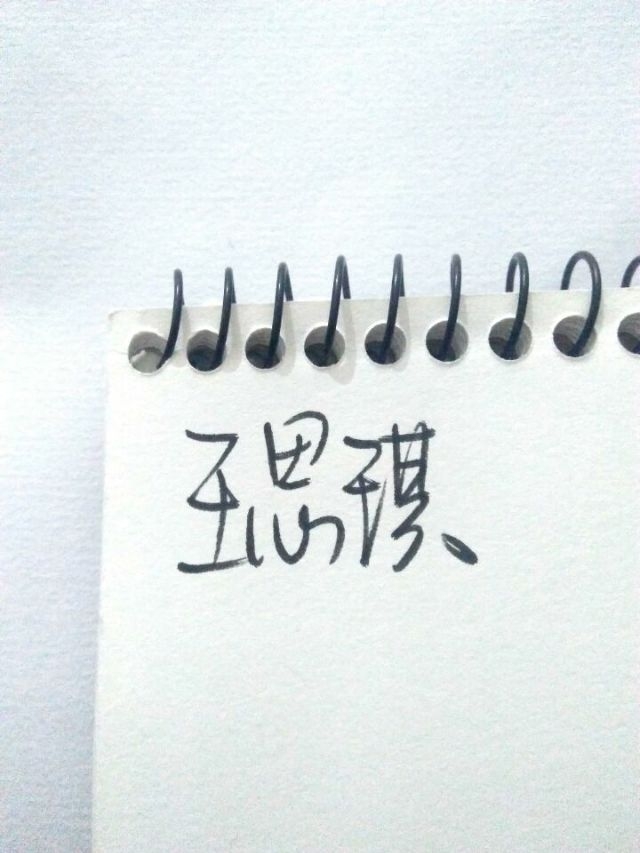 王思琪